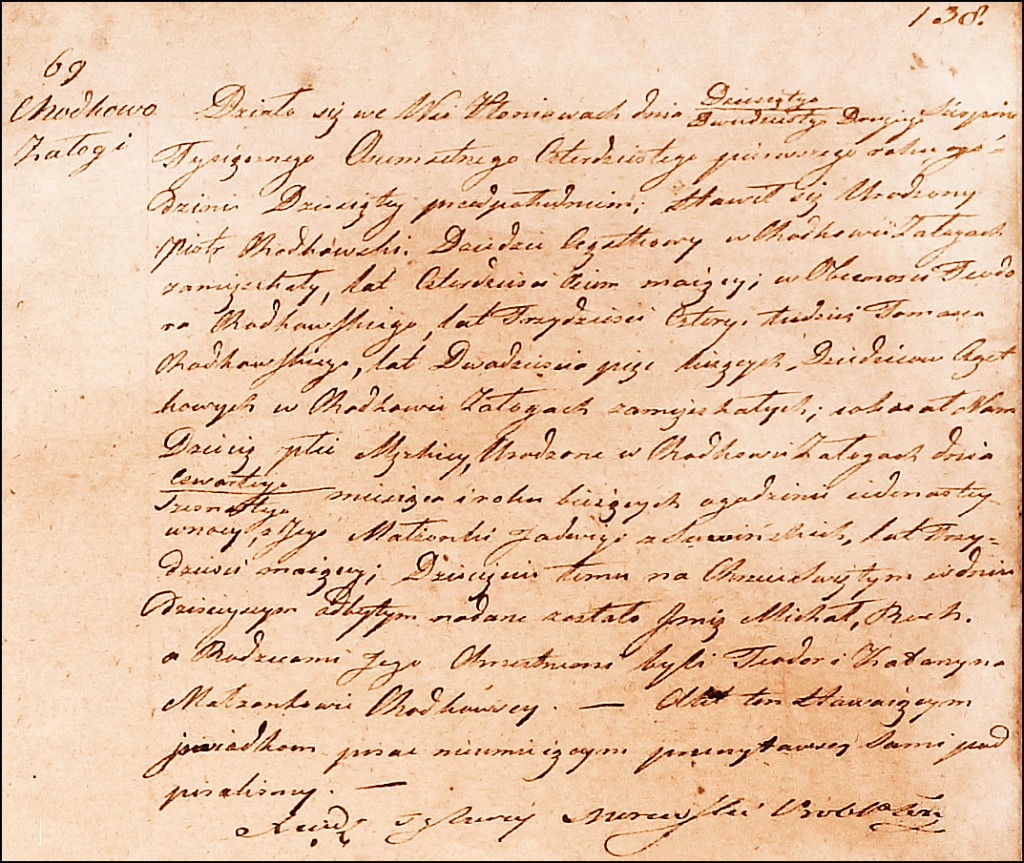 138.
69
Chodkowo
Załogi
Działo się we Wsi Płoniawach dnia Dziesiątego
Dwudziestego Drugiego Sierpnia
Tysiącznego Osiemsetnego Czterdziestego pierwszego roku, ogo-
dzinie Dziesiątey przedpołudniem; Stawił się Urodzony
Piotr Chodkowski Dziedzic Cząstkowy w Chodkowie Załogach
zamięszkały, lat Czterdzieści Ośm maiący; w Obecności Teodo
ra Chodkowskiego, lat Trzydzieści Cztery, tudzież Tomasza
Chodkowskiego, lat Dwadzieścia pięć liczących, Dziedziców Cząst
kowych w Chodkowie Załogach zamięszkałych; i okazał Nam
Dziecię płci Męzkiey, Urodzone w Chodkowie Załogach dnia
Czwartego
Szesnastego miesiąca i roku bieżących ogodzinie iedenastey
wnocy, z Jego Małżonki Jadwigi z Suwińskich, lat Trzy-
dzieści maiącey; Dziecięciu temu na Chrzcie Świętym w dniu
dzisieyszym odbytym nadane zostało Jmię Michał, Roch.
a Rodzicami Jego Chrzestnemi byli Teodor i Katarzyna
Małżonkowie Chodkowscy. — Akt ten stawaiącym
świadkom pisać nieumieiącym przeczytawszy Sami pod
pisaliśmy. —